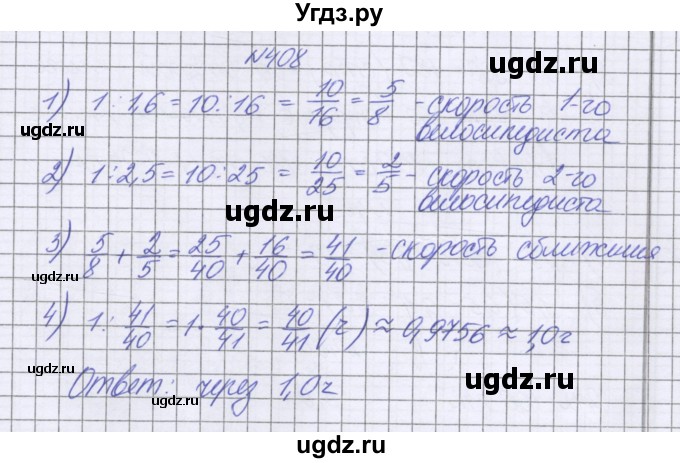 Угдз.ру
№408
1) 1:1,6=10:16 = 10/16 = 5/8 - скорость 1-го
велосипедиста
2) 1:2,5=10:25 = 10/25 = 2/5 - скорость 2-го
велосипедиста
3) 5/8 + 2/5 = 25/40 + 16/40 = 41/40 - скорость сближения
4) 1: 41/40 = 1· 40/41 = 40/41 (ч) ≈ 0,9756 ≈ 1,0 ч
Ответ: через 1,0 ч
ugdz.ru
ugdz.ru
ugdz.ru
ugdz.ru
ugdz.ru
ugdz.ru
ugdz.ru
ugdz.ru
ugdz.ru
ugdz.ru
ugdz.ru